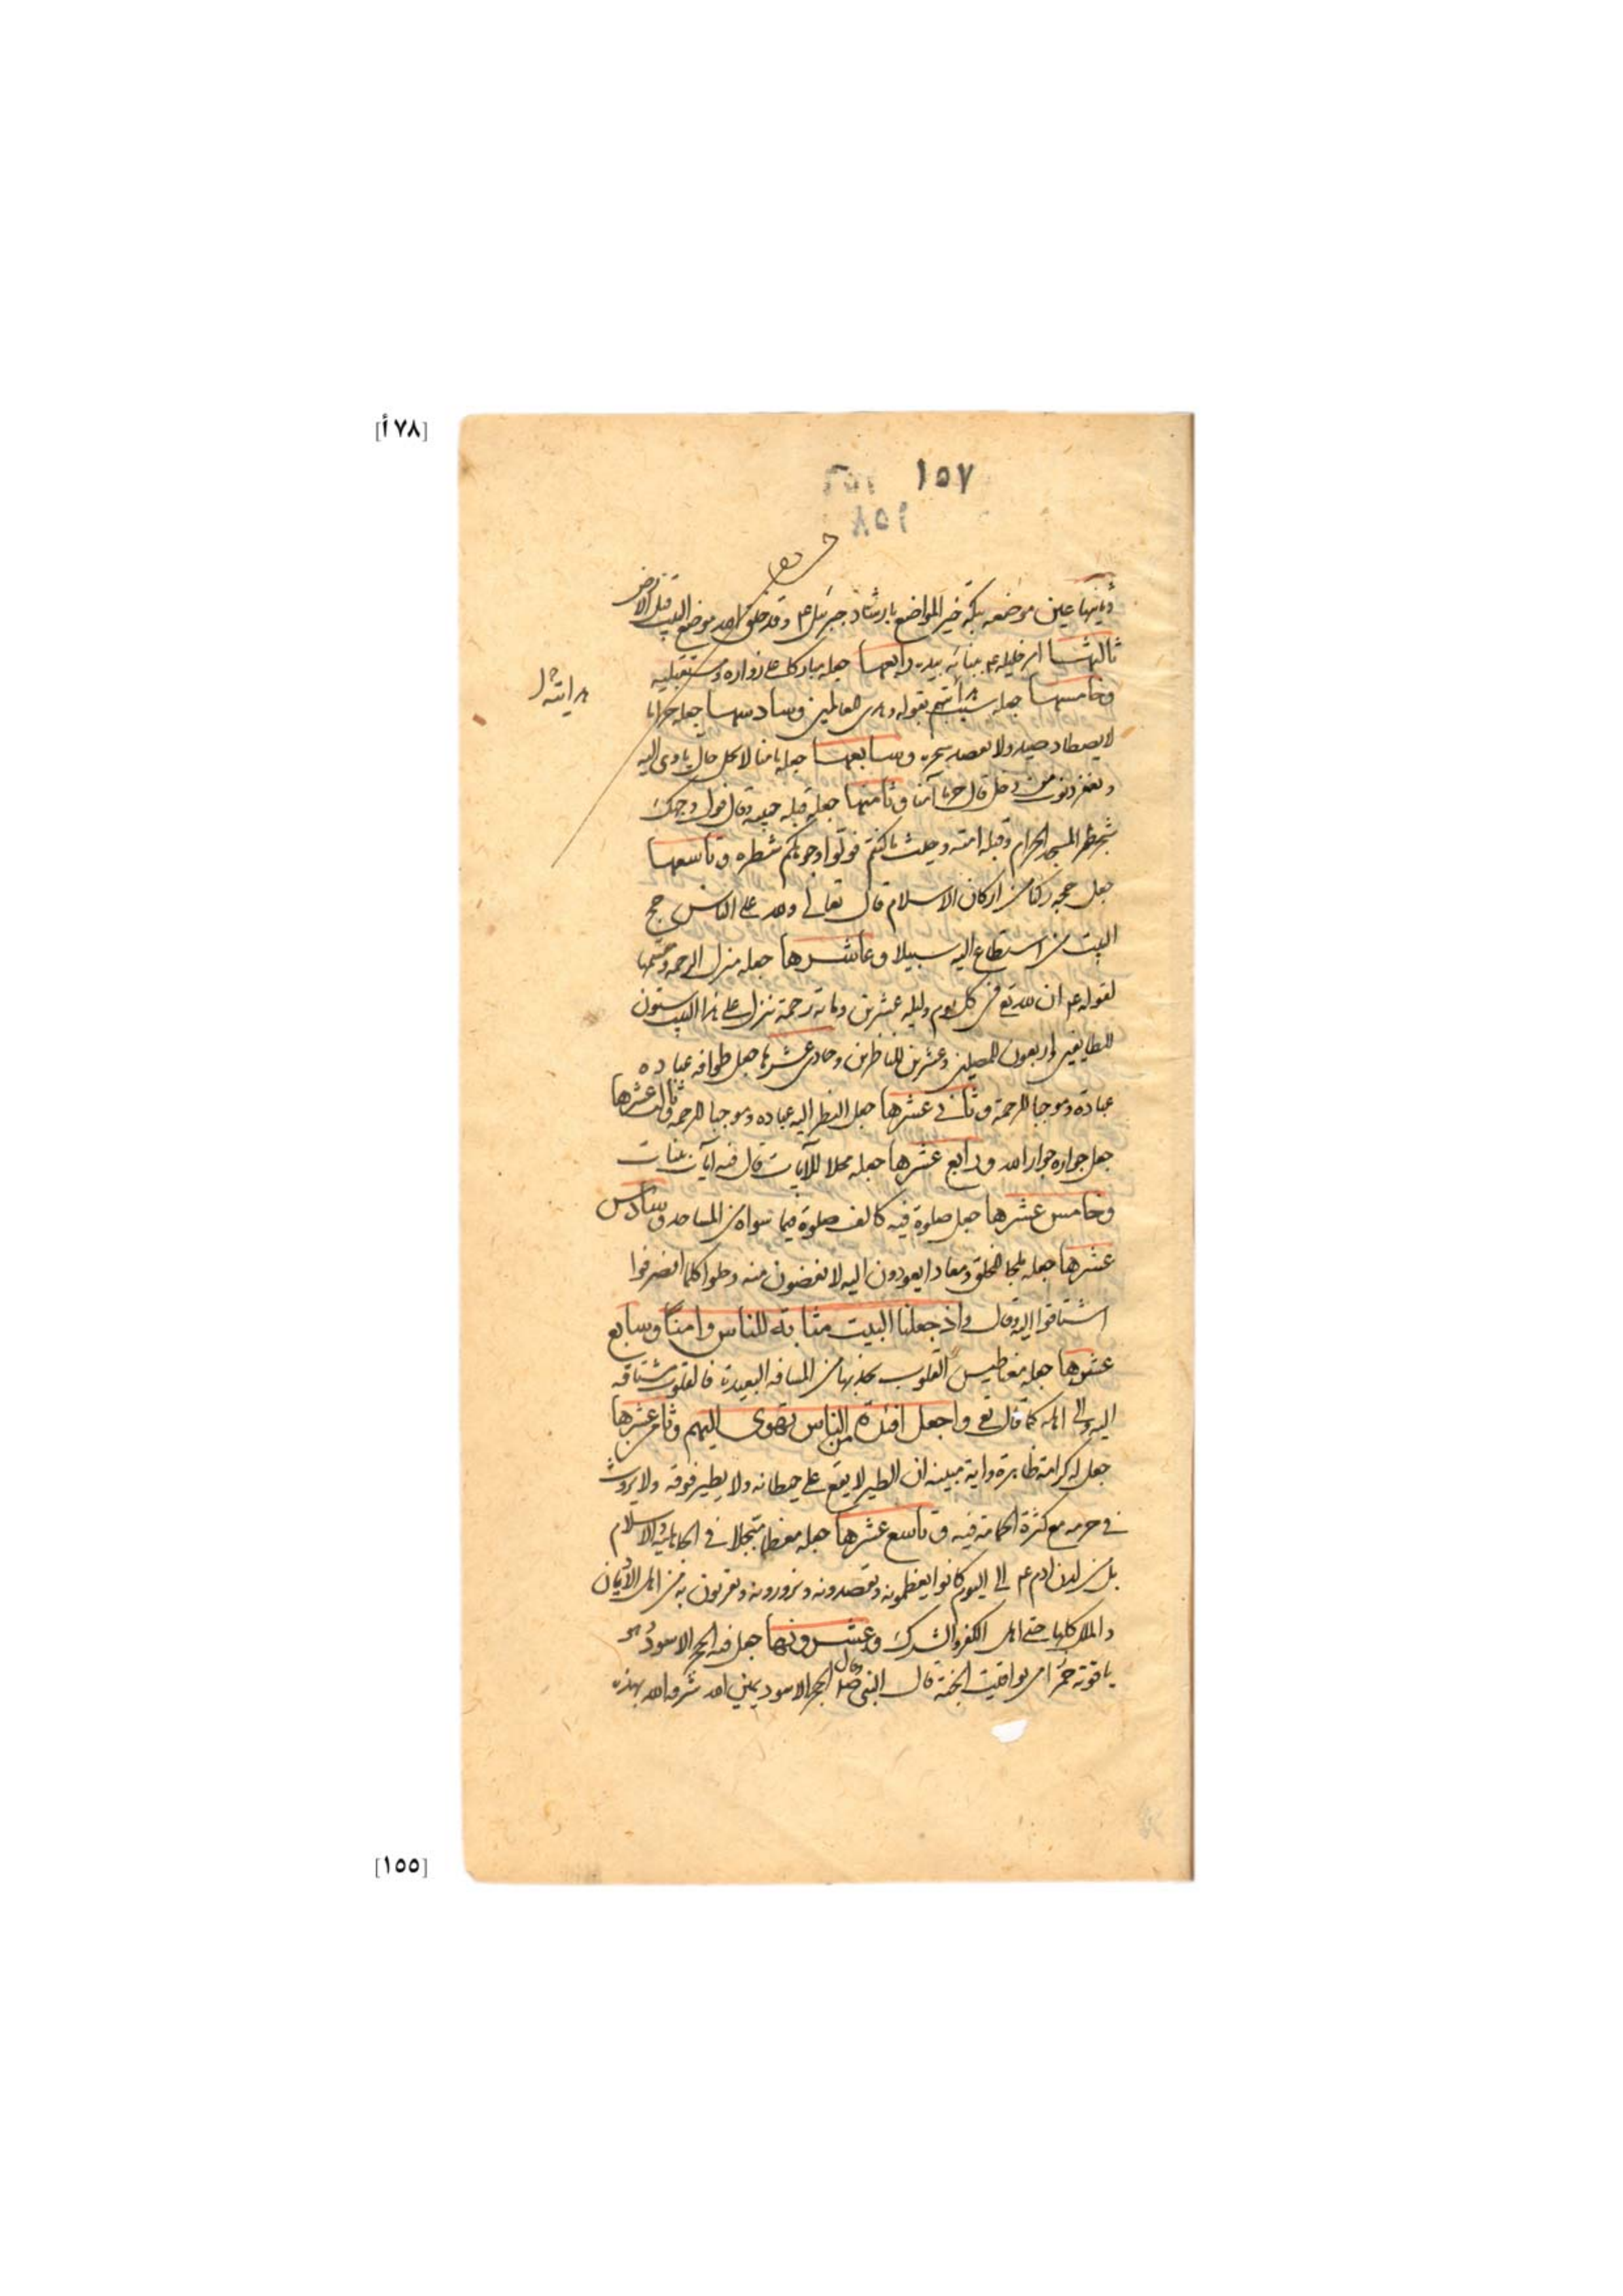 [٧٨ أ]
١٥٧
١٥٨
وثانيها عين موضعه بمكة خير المواضع بارشاد جبرئيل عم وقد خلق الله موضع البيت قبل الارض
ثالثها امر خليله عم ببنائه بيده رابعها جعله مباركا على زواره ومستقبليه
وخامسها جعله سبب هدايتهم بقوله وهدى للعالمين وسادسها جعله حراما
هدايته
لا يصطاد صيده ولا يعضد شجره وسابعها جعله مامنا لاكل حال ياوى اليه
دخل قال حرما آمنا وثامنها جعله قبلة حبيبه وقال فول وجهك
شطر المسجد الحرام وقبلة امته وحيث ما كنتم فولوا وجوهكم شطره وتاسعها
جعل حجه ركنا من اركان الاسلام قال تعالى ولله على الناس حج
البيت من استطاع اليه سبيلا وعاشرها جعله منزل الرحمة
لقوله عم ان لله تع في كل يوم وليله عشرين ومائة رحمة تنزل على هذا البيت ستون
للطايفين واربعون للمصلين وعشرين للناظرين وحادي عشرها جعل طوافه عباده
عبادة وموجبا للرحمة وثاني عشرها جعل النظر اليه عباده وموجبا للرحمة وثالث عشرها
جعل جواره جوار الله ورابع عشرها جعله محلا للآيات قال فيه آيات بينات
وخامس عشرها جعل صلوة فيه كالف صلوة فيما سواه من المساجد وسادس
عشرها جعله ملجا للخلق ومعادا يعودون اليه لا يقضون منه وطرا كلما انصرفوا
اشتاقوا اليه وقال واذ جعلنا البيت مثابة للناس وامنا وسابع
عشرها جعله مغناطيس القلوب يجذبها من المسافه البعيدة فالقلوب مشتاقه
اليه والى اهله كما قال تع واجعل افئدة من الناس تهوى اليهم وثامن عشرها
جعل له كرامة ظاهرة واية مبينه ان الطير لا يقع على حيطانه ولا يطير فوقه ولا يروث
في حرمه مع كثرة الحمامة فيه وتاسع عشرها جعله معظما مبجلا في الجاهلية والاسلام
بل من لدن ادم عم الى اليوم كانوا يعظمونه ويقصدونه ويزورونه به من اهل الاديان
والملل كلها حتى اهل الكفر والشرك وعشرونها جعل فيه الحجر الاسود وهو
ياقوته حمرا من يواقيت الجنة قال النبي صلى الحجر الاسود يمين الله شرفه الله بهذه
[١٥٥]